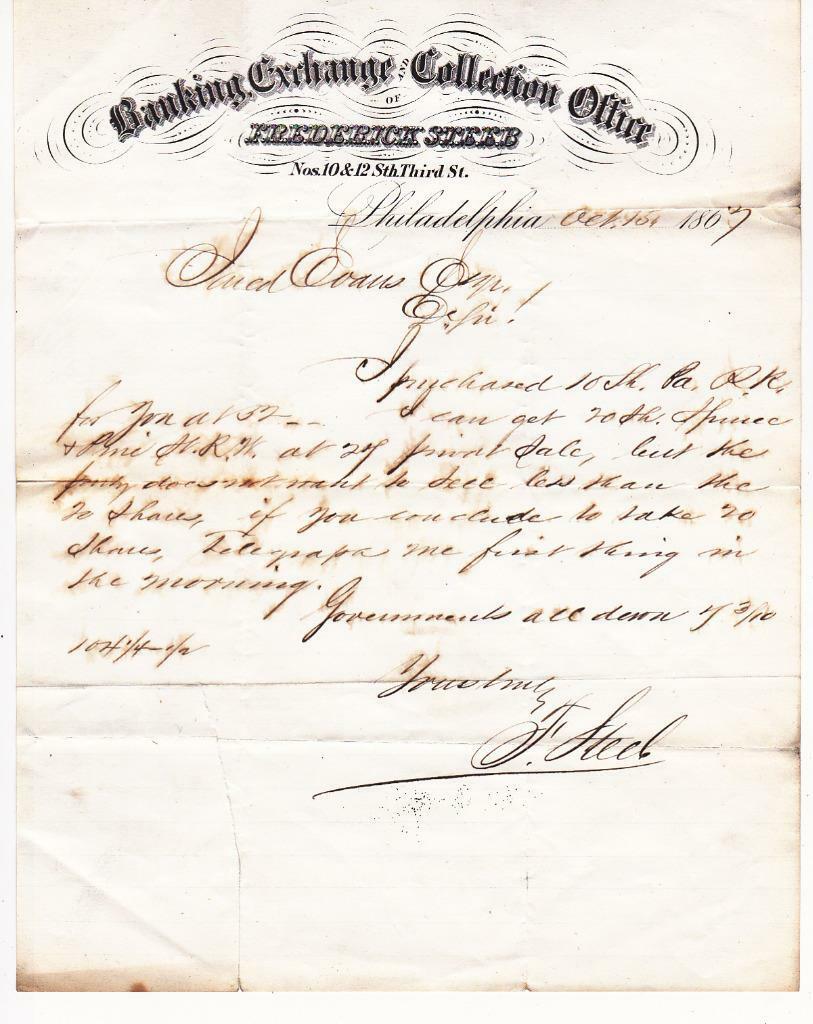 Banking, Exchange AND Collection Office
OF
FREDERICK STEEB
Nos. 10 & 12 Sth Third St.
Philadelphia Oct. 15. 1867
Jared Evans Esqr.
D. Sir!
I purchased 10 Sh. Pa. R.R.
for you at 52 -- I can get 20 Sh. Spruce
& Pine St. R.W. at 27 privat Sale, but the
party does not want to sell less than the
20 Shares, if you conclude to take 20
Shares, Telegraph me first thing in
the morning.
Governments all down 7 3/10
104 1/4 - 1/2
Yours truly
F. Steeb